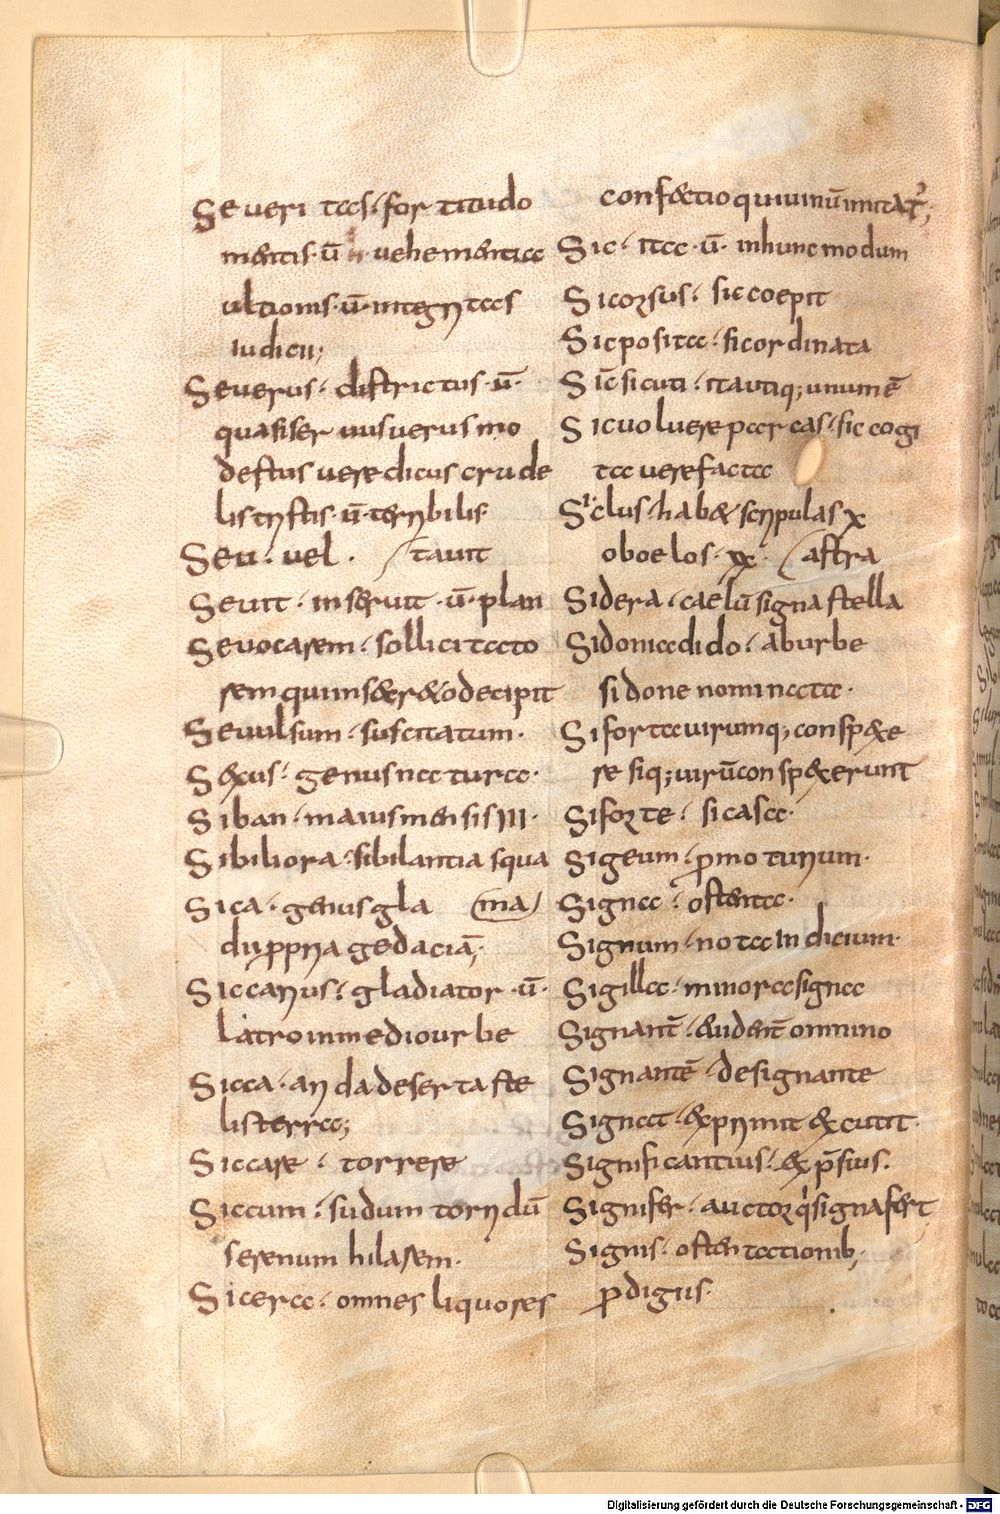 Seueri tas· fortitudo
mentis· ū uehementia
ultionis· ū· integritas
iudicii;
Seuerus· districtus· ū·
quasi ser uus uerus mo
destus uere dicus crude
lis tristis· ū· terribilis
Seu· uel· / tauit
Seuit· inseruit· ū· plan
Seuocarem· sollicitato
rem qui inseret & decipit
Seuulsum· suscitatum·
Sexus· genus natura·
Siban· maius mensis III·
Sibiliora· sibilantia squa
Sica· genus gla (ma)
dii ppria gedaciā;
Siccarius· gladiator· ū·
latro in medio urbe
Sicca· arida deserta ste
lis terra;
Siccare· torrere
Siccum· sudum torridū
serenum hilarem·
Sicera· omnes liquores
confectio qui uinū imitat̄;
Sic· ita· ū· in hunc modum
Sicorsus· sic coepit
Sic posita· sic ordinata
Sic̄ sicuti· ita utiq; unum ē
Sic uoluere parcas· sic cogi
ta uere facta
Siclus· hab& scripulas x
oboelos· xx· (astra
Sidera· caelū signa stella
Sidonia dido· ab urbe
sidone nominata·
Si forta uirumq; conspexe
re siq; uirū conspexerunt
Si forte· si casa·
Sigeum· promoturium·
Signa· ostenta·
Signum· nota indicium·
Sigilla· minora signa
Signant̄· euident̄ omnino
Signantē· designante
Signat· exprimit excutit·
Significantius· exp̄sius·
Signifer· auctor q̇ signa fert
Signis· ostentationib;
pdigiis·
Digitalisierung gefördert durch die Deutsche Forschungsgemeinschaft - DFG